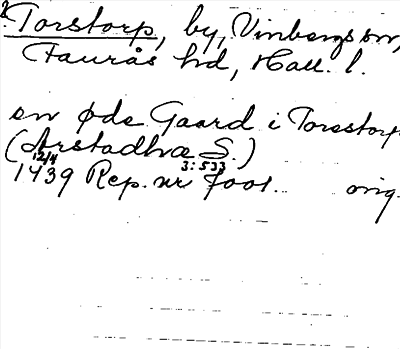 Torstorp, by, Vinbergs sn,
Faurås hd, Hall. l.
en øde Gaard i Torsstorp
(Arstadhræ S.)
12/4 3:533
1439 Rep. nr 7001. orig.